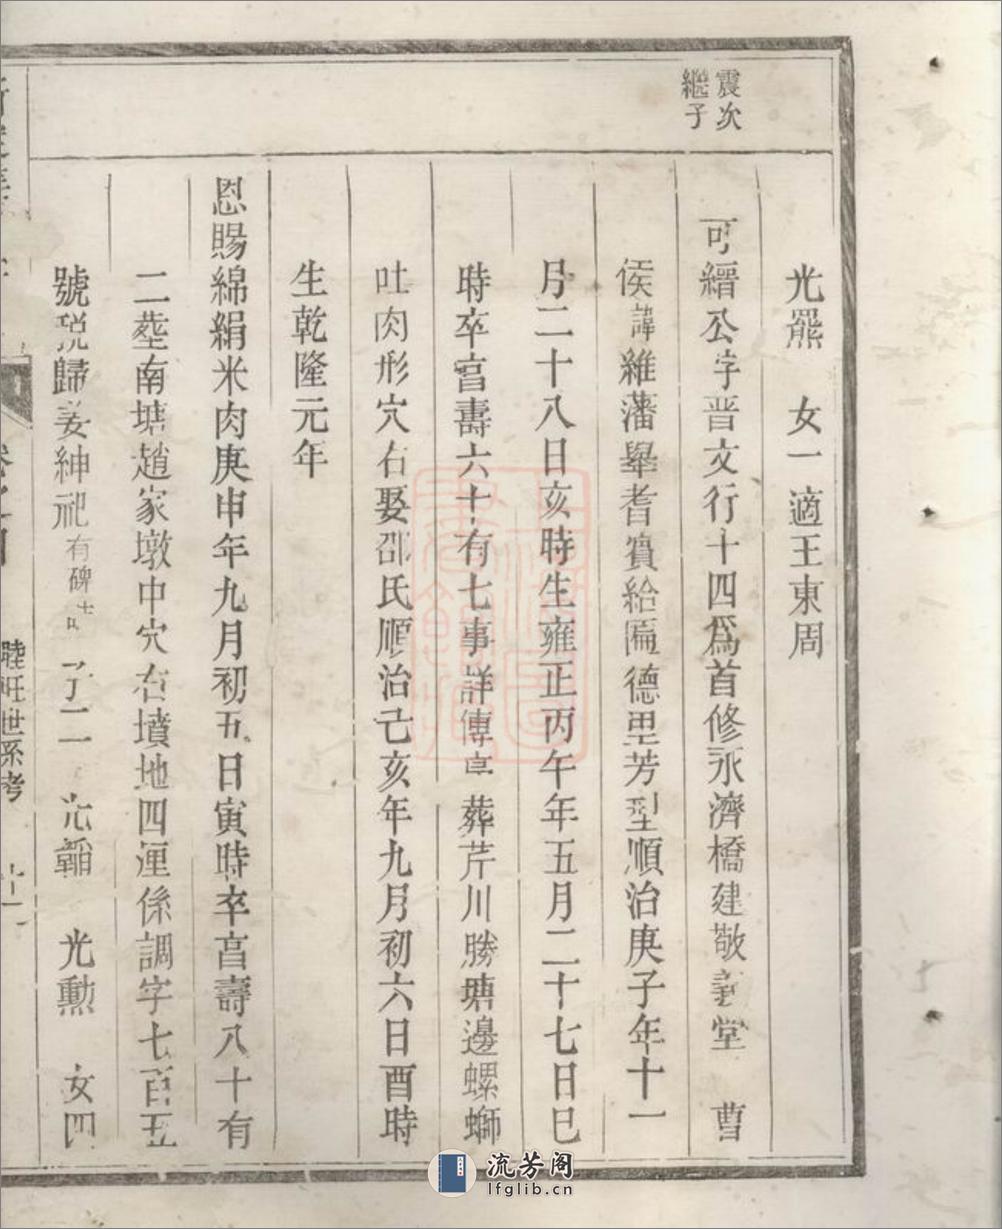 震次
繼子
光羆　女一適王東周
可縉公字晋文行十四爲首修永濟橋建敬義堂　曹
侯諱維藩舉耆賓給匾德里芳型順治庚子年十一
月二十八日亥時生雍正丙午年五月二十七日巳
時卒享壽六十有七事詳傳　葬芹川勝塘邊螺螄
吐肉形穴右娶邵氏順治己亥年九月初六日酉時
生乾隆元年
恩賜綿絹米肉庚申年九月初五日寅時卒享壽八十有
二塟南塘趙家墩中穴右墳地四厘係調字七百五
號税歸姜紳祀有碑　子二　光韜　光勲　女四
睦旺世系考
流芳阁
lfglib.cn